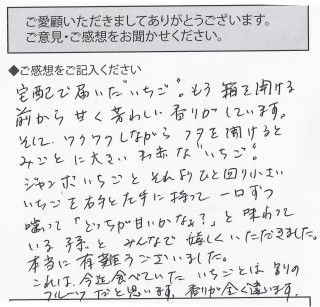 ご愛顧いただきましてありがとうございます。
ご意見・ご感想をお聞かせください。
◆ご感想をご記入ください
宅配で届いた"いちご"。もう箱を開ける
前から甘く芳わしい香りがしています。
そして、ワクワクしながらフタを開けると
みごとに大きいお赤な"いちご"。
ジャンボいちごとそれよりひと回り小さい
いちごを右手と左手に持って一口ずつ
喰って「どっちが甘いかなぁ?」と味わって
いる孫とみんなで嬉しくいただきました。
本当に有難うございました。
これは、今迄食べていたいちごとは別の
フルーツだと思います。香りが全く違います。